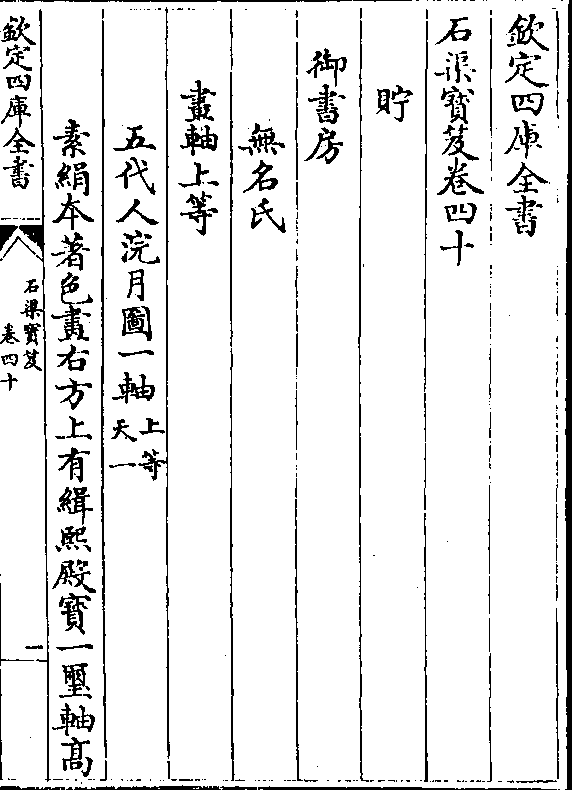 欽定四庫全書
石渠寶芨卷四十
貯
御書房
無名氏
畫軸上等
五代人浣月圖一軸上等
天一
素絹本著色畫右方上有緝熙殿寶一璽軸髙
欽定四庫全書
石渠寶芨
卷四十
一